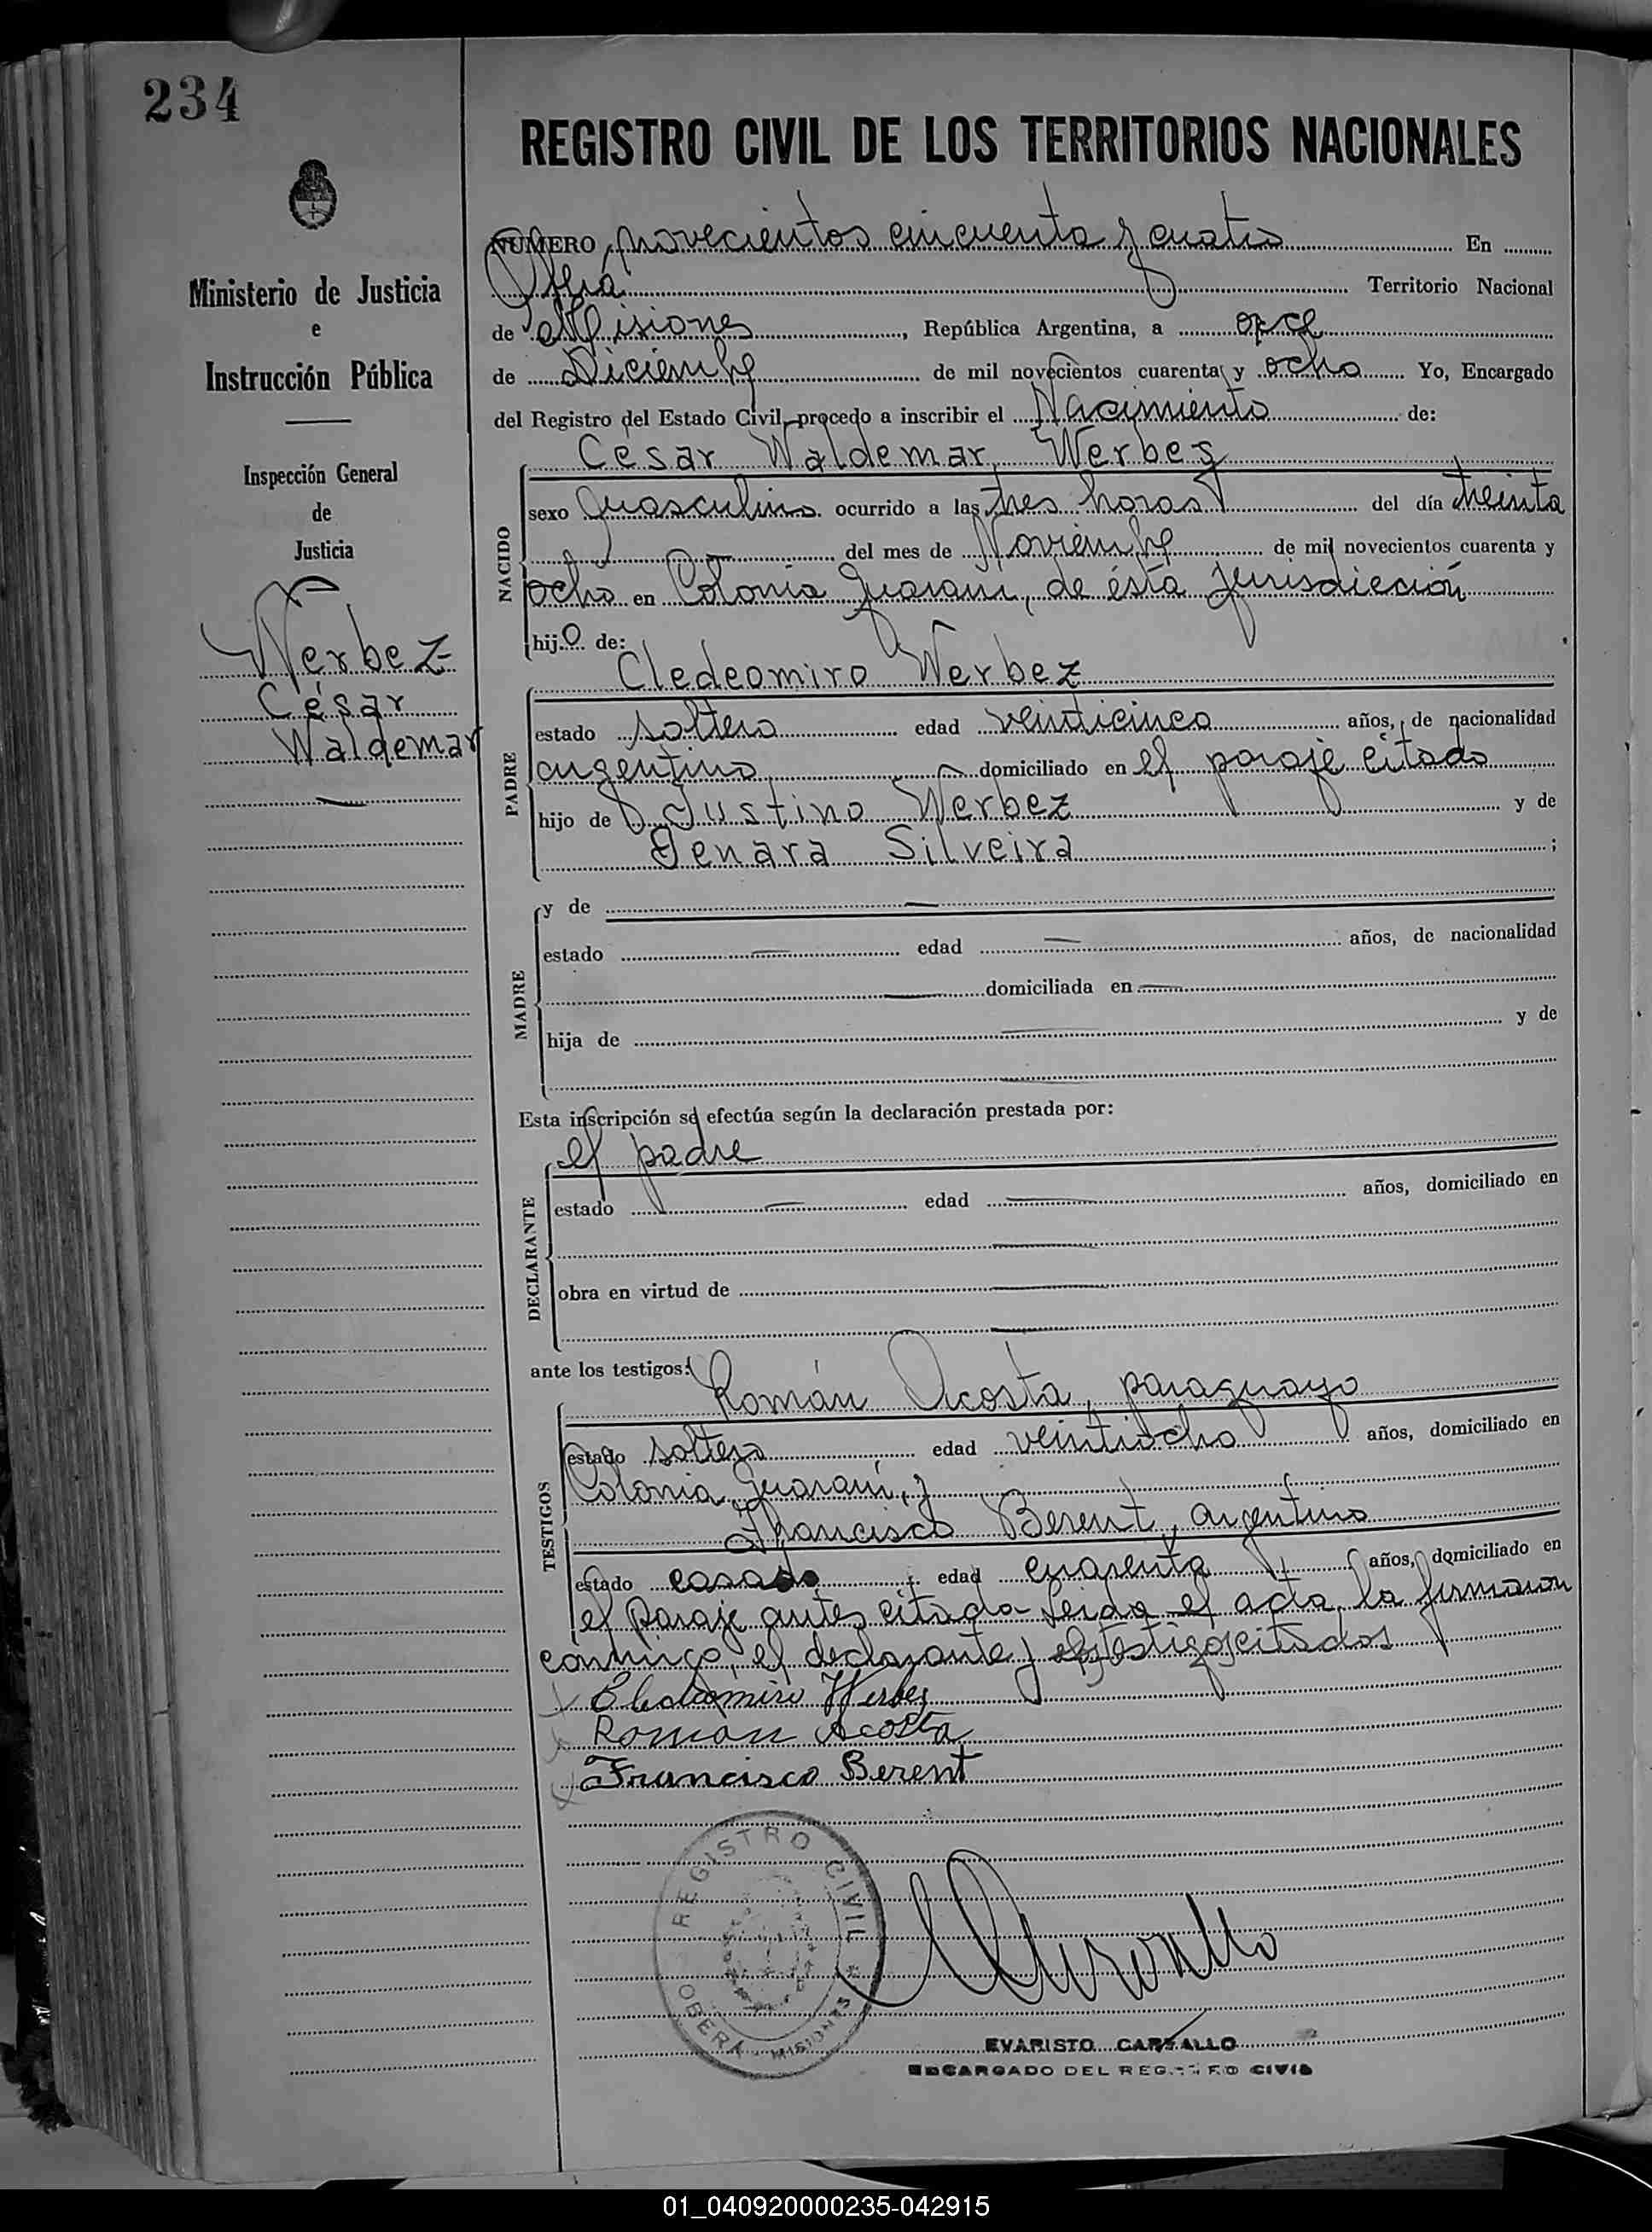 234
REGISTRO CIVIL DE LOS TERRITORIOS NACIONALES
Ministerio de Justicia
e
Instrucción Pública
Inspección General
de
Justicia
Werbez
César
Waldemar
NUMERO novecientos cincuenta y cuatro En
Oberá Territorio Nacional
de Misiones, República Argentina, a once
de Diciembre de mil novecientos cuarenta y ocho Yo, Encargado
del Registro del Estado Civil, procedo a inscribir el Nacimiento de:
César Waldemar Werbez
NACIDO
sexo masculino ocurrido a las tres horas del día treinta
del mes de Noviembre de mil novecientos cuarenta y
ocho en Colonia Guaraní, de ésta jurisdicción
hijo de:
Cledeomiro Werbez
PADRE
estado soltero edad veinticinco años, de nacionalidad
argentino domiciliado en el paraje citado
hijo de Justino Werbez y de
Genara Silveira ;
MADRE
y de
estado edad años, de nacionalidad
domiciliada en
hija de y de
Esta inscripción se efectúa según la declaración prestada por:
el padre
DECLARANTE
estado edad años, domiciliado en
obra en virtud de
ante los testigos:
Román Acosta, paraguayo
TESTIGOS
estado soltero edad veintiocho años, domiciliado en
Colonia Guaraní, y
Francisco Berent, argentino
estado casado edad cuarenta años, domiciliado en
el paraje antes citado Leida el acta, la firmaron
conmigo, el declarante y los testigos citados
Cledeomiro Werbez
Roman Acosta
Francisco Berent
REGISTRO CIVIL
OBERA - MISIONES
EVARISTO CARBALLO
ENCARGADO DEL REGISTRO CIVIL
01_040920000235-042915